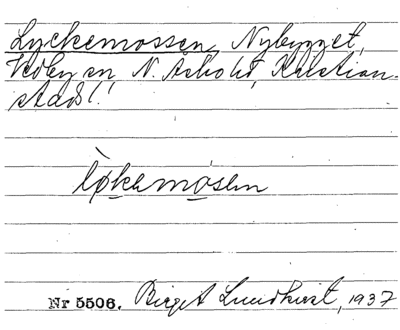 Lyckemossen, Nybygget,
Vedby sn, N. Åsbo hd, Kristian-
stads l.
lø̀kemosen
Nr 5506. Birgit Lundkvist, 1937